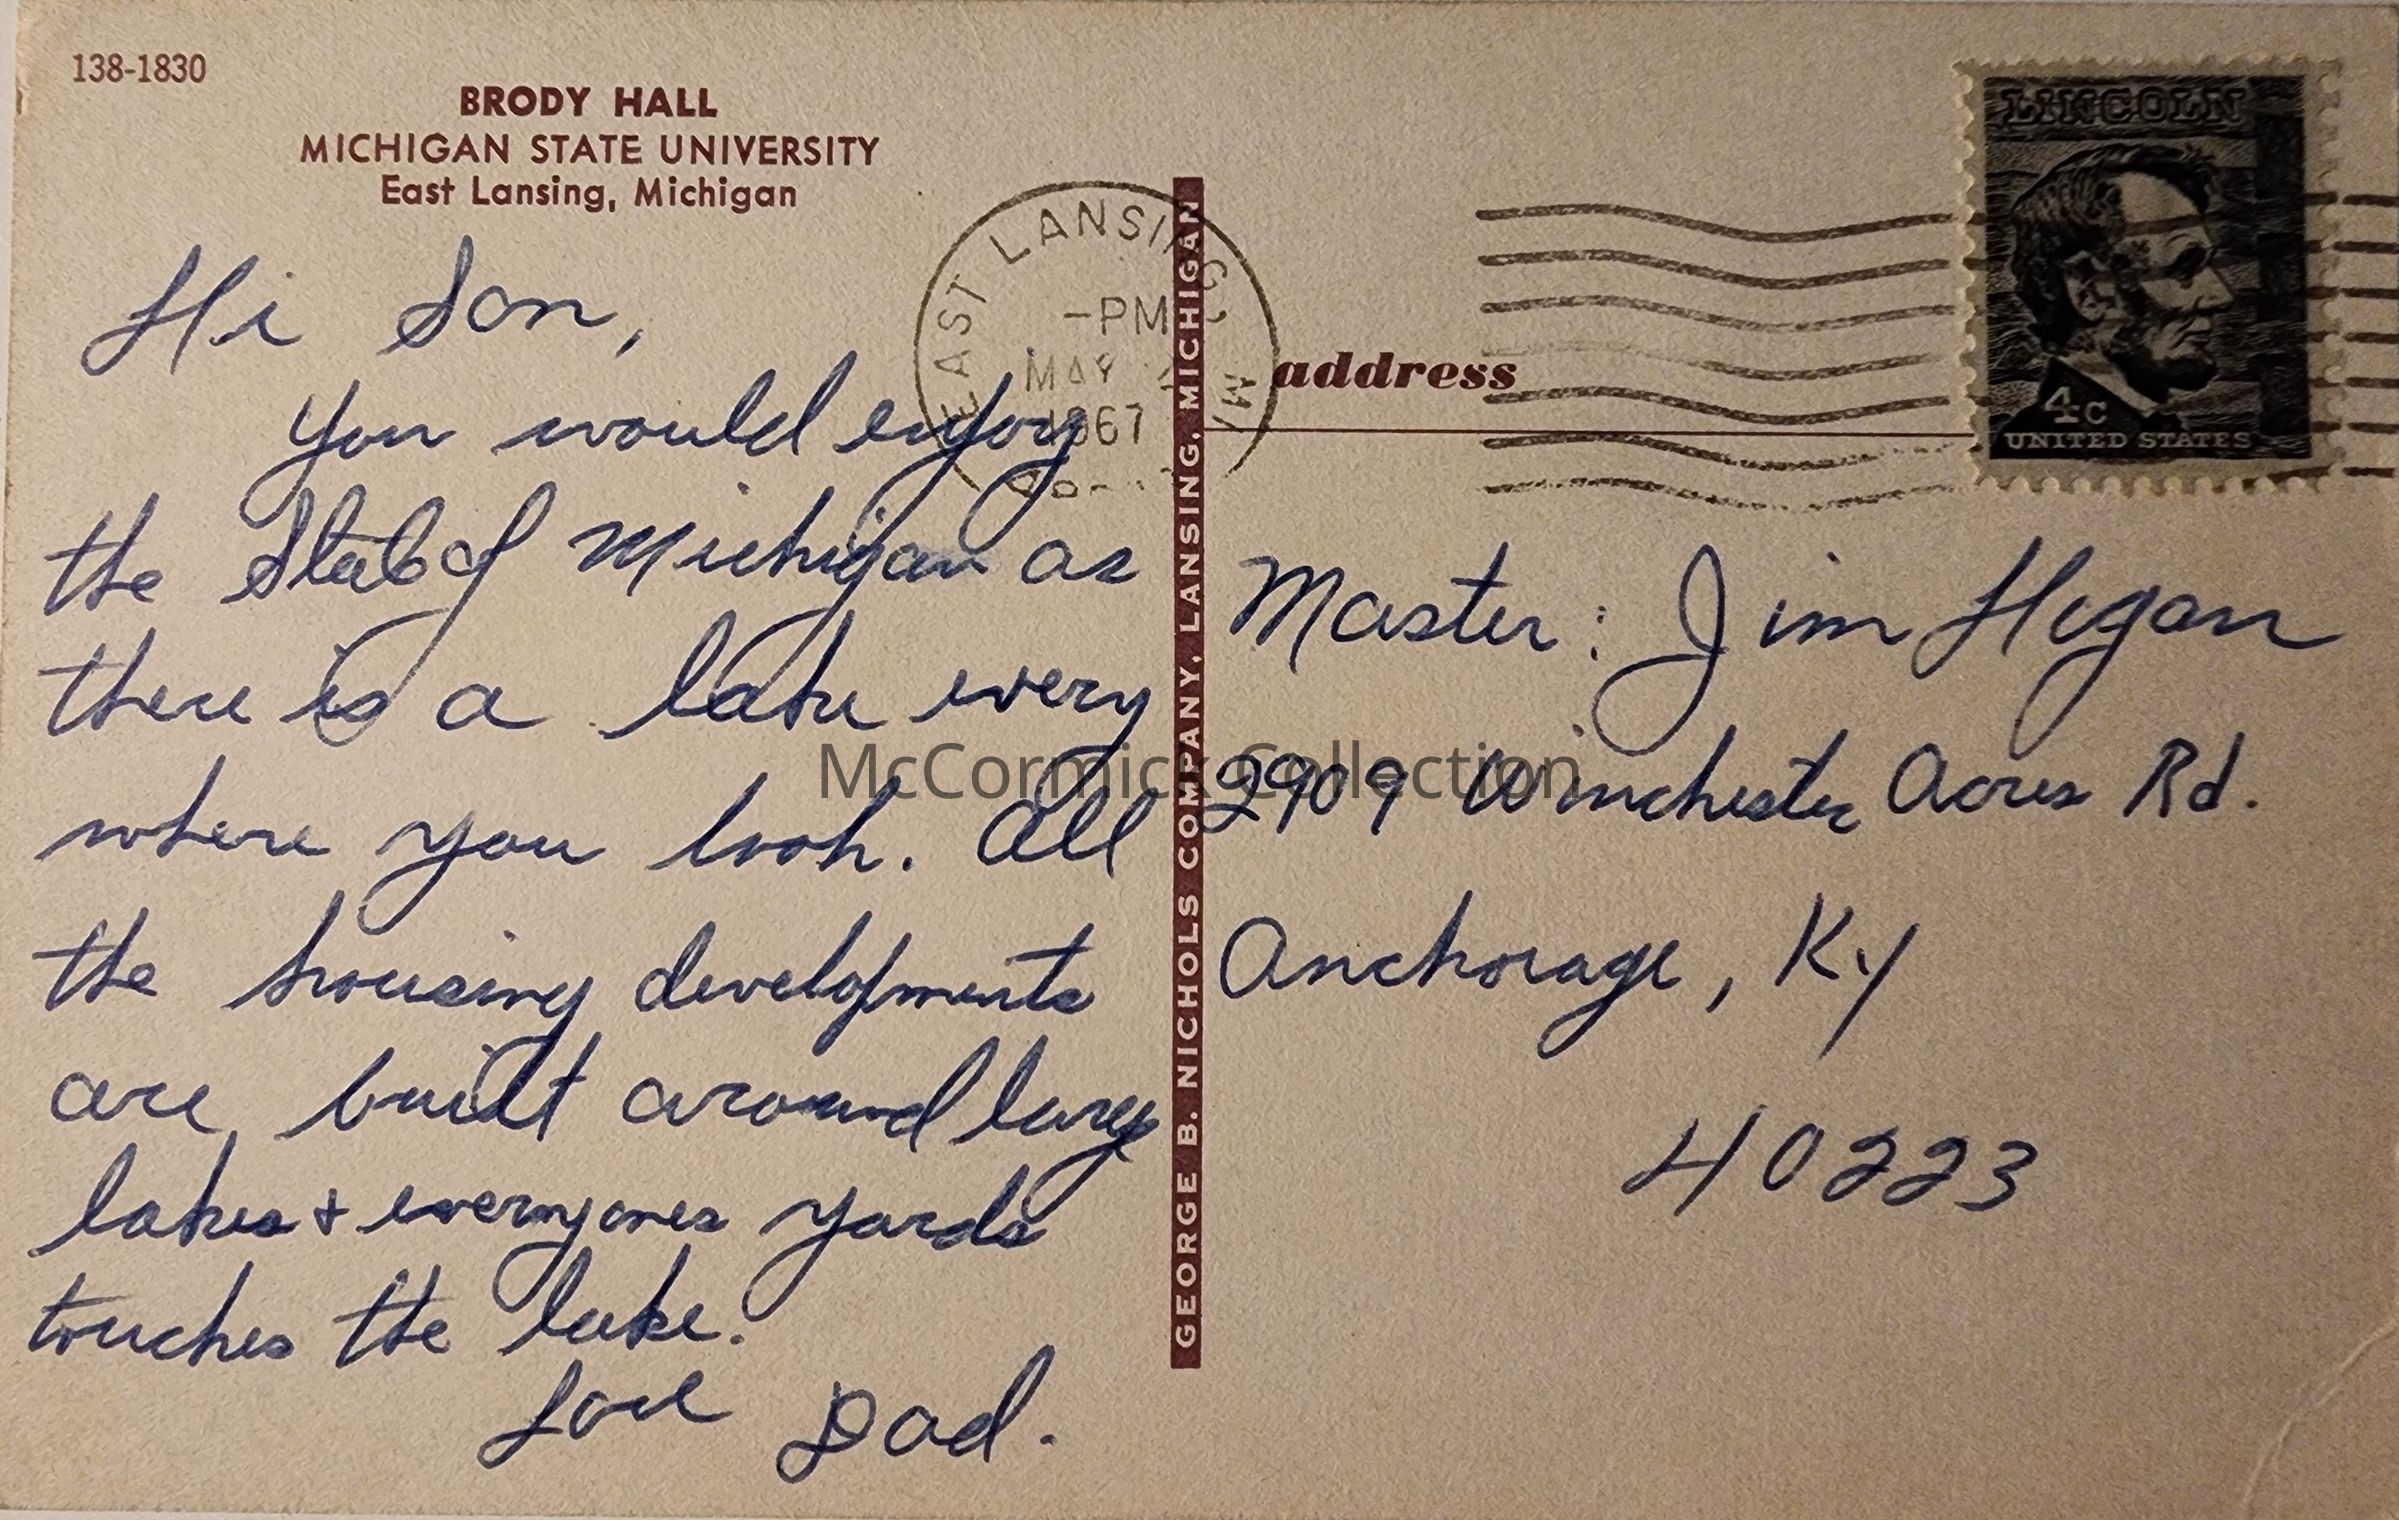 138-1830
BRODY HALL
MICHIGAN STATE UNIVERSITY
East Lansing, Michigan
Hi Son,
You would enjoy
the State of Michigan as
there is a lake every
where you look. All
the housing developments
are built around large
lakes & everyones yards
touches the lake.
Love Dad.
GEORGE B. NICHOLS COMPANY, LANSING, MICHIGAN
EAST LANSING MI
-PM
MAY
1967
address
LINCOLN
4c
UNITED STATES
Master: Jim Hegan
2909 Winchester Acres Rd.
Anchorage, Ky
40223
McCormick Collection